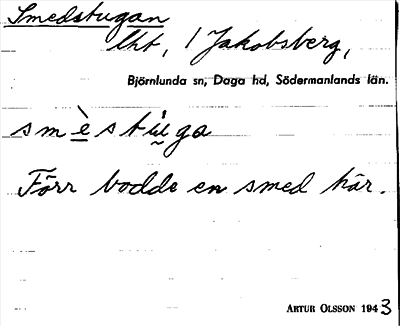 Smedstugan
lht, 1 Jakobsberg,
Björnlunda sn, Daga hd, Södermanlands län.
smèstu̇ga
Förr bodde en smed här.
ARTUR OLSSON 1943